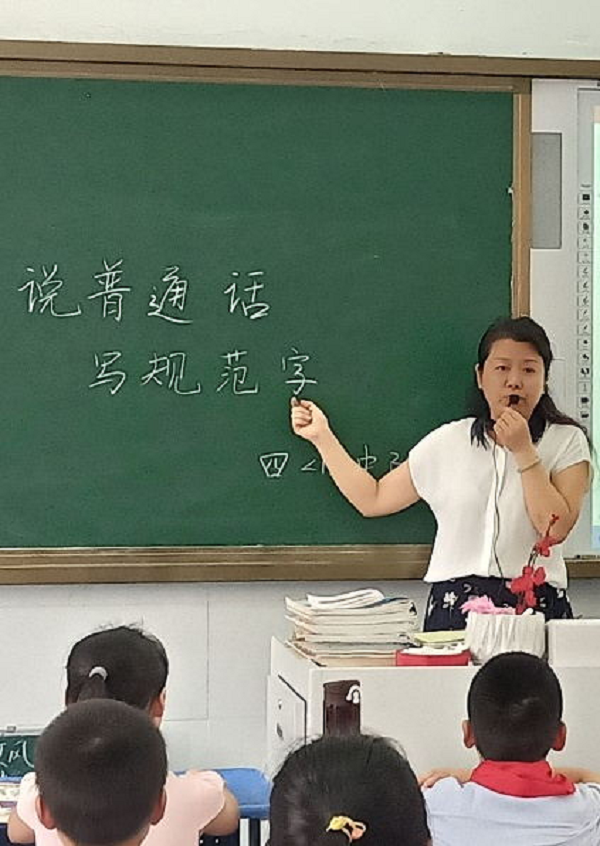 说普通话
写规范字
四
风